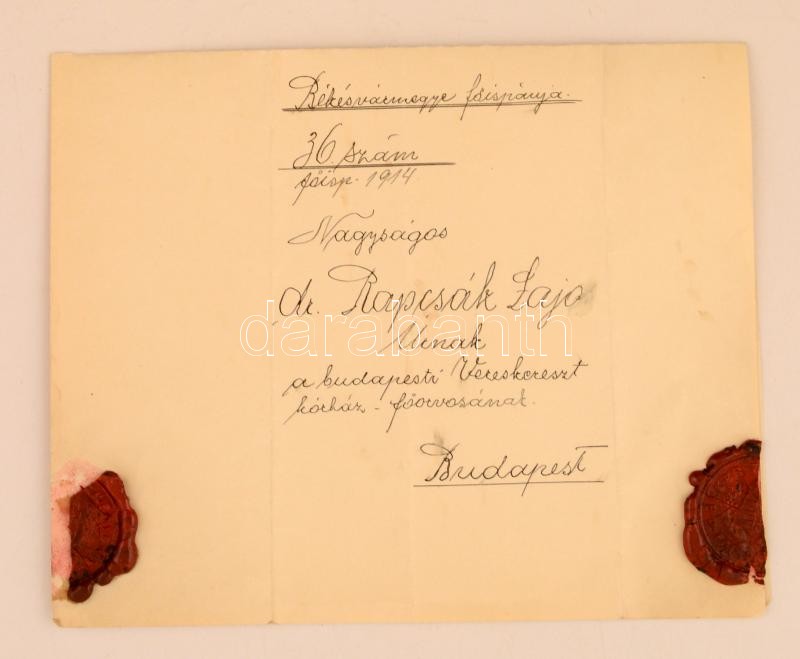 Békésvármegye főispánja.
36 szám
főisp. 1914
Nagyságos
dr. Rapcsák Lajos
Úrnak
a budapesti Vereskereszt
kórház - főorvosának.
Budapest
darabanth